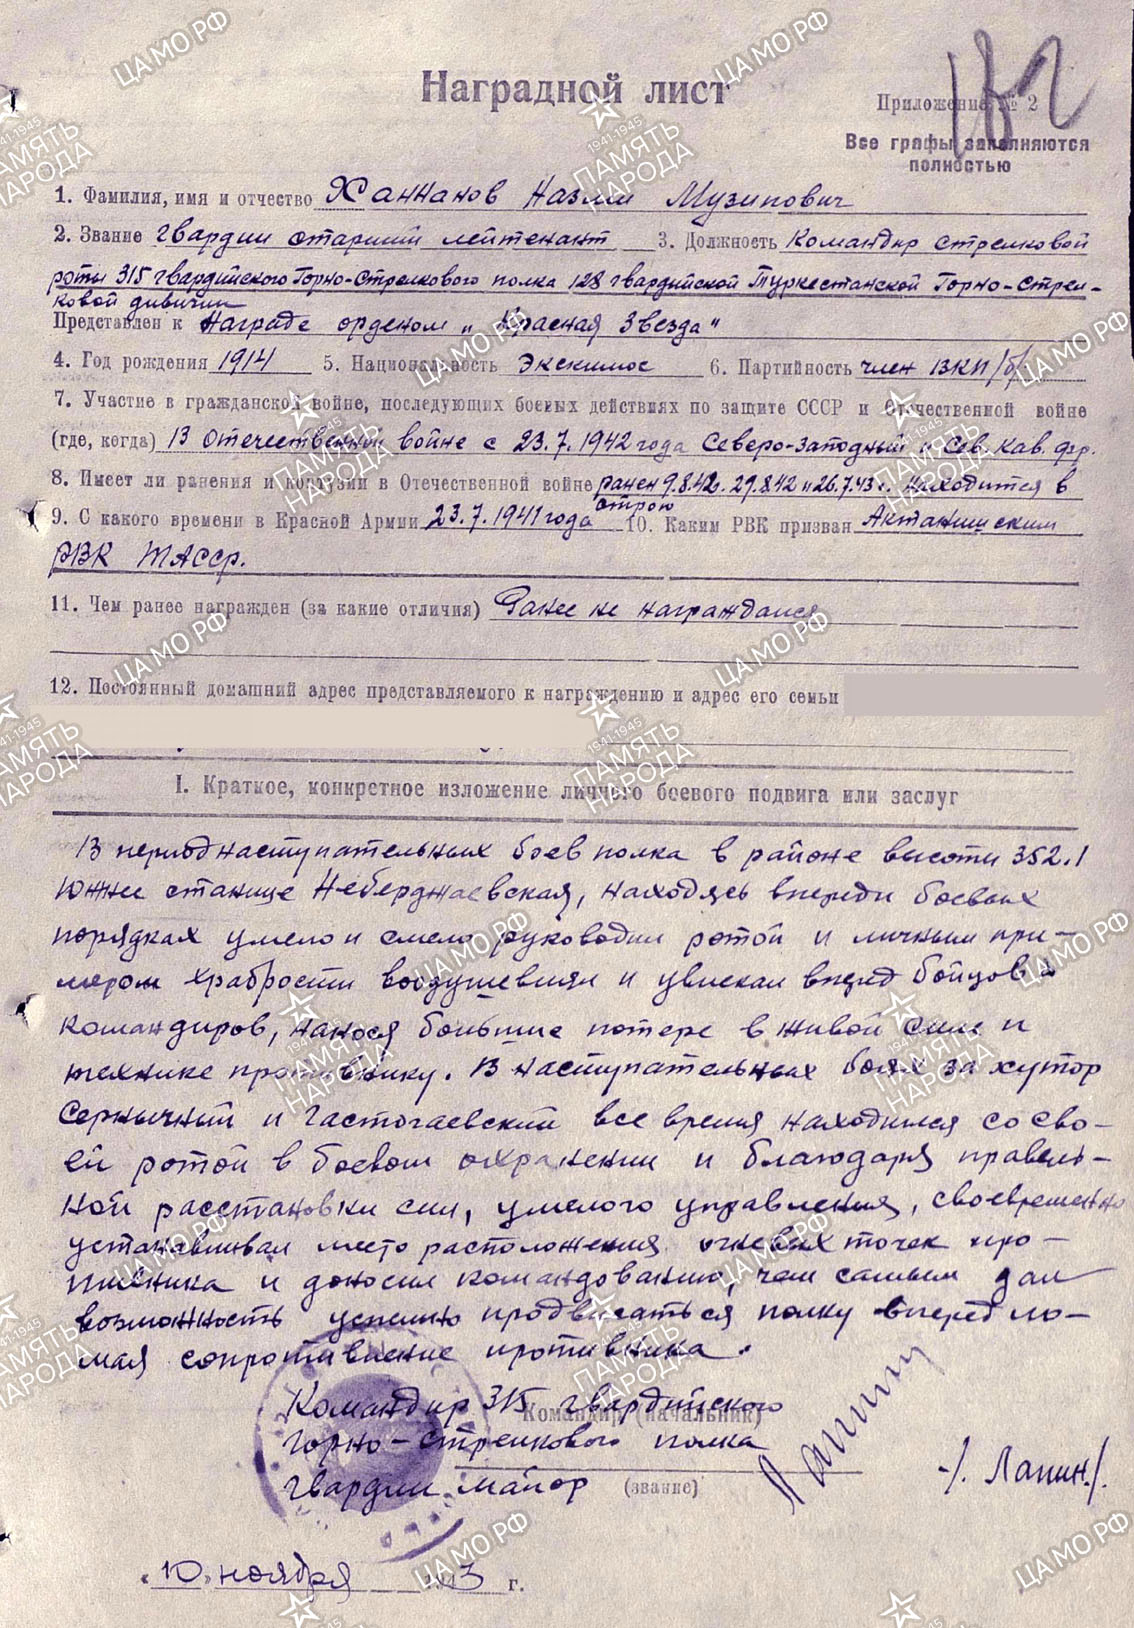 182
Наградной лист
Приложение № 2
Все графы заполняются
полностью
1. Фамилия, имя и отчество Ханнанов Назми Музипович
2. Звание Гвардии старший лейтенант 3. Должность Командир стрелковой
роты 315 гвардийского Горно-Стрелкового полка 128 гвардийской Туркестанской Горно-Стрел-
ковой дивизии
Представлен к Награде орденом „Красная Звезда"
4. Год рождения 1914 5. Национальность Экскимос 6. Партийность член ВКП/б/
7. Участие в гражданской войне, последующих боевых действиях по защите СССР и Отечественной войне
(где, когда) В отечественной войне с 23.7.1942 года Северо-Западный и Сев. Кав. фр.
8. Имеет ли ранения и контузии в Отечественной войне ранен 9.8.42г. 29.8.42 и 26.7.43 г. находится в
строю
9. С какого времени в Красной Армии 23.7.1941 года 10. Каким РВК призван Актанышским
РВК ТАССР.
11. Чем ранее награжден (за какие отличия) Ранее не награждался
12. Постоянный домашний адрес представляемого к награждению и адрес его семьи
I. Краткое, конкретное изложение личного боевого подвига или заслуг
В период наступательных боев полка в районе высоты 352.1
южнее станице Неберджаевская, находясь впереди боевых
порядках умело и смело руководил ротой и личным при-
мером храбрости воодушевлял и увлекал вперед бойцов и
командиров, нанося большие потере в живой силе и
технике противнику. В наступательных боях за хутор
Серничный и Гастогаевский все время находился со сво-
ей ротой в боевом охранении и благодаря правель-
ной расстановки сил, умелого управления, своевременно
устанавливал место расположения огневых точек про-
тивника и доносил командованию, чем самым дал
возможность успешно продвигаться полку вперед ло-
мая сопротивление противника.
Командир 315 гвардийского
Командир (начальник)
Горно-стрелкового полка
гвардии майор (звание) Лапин -/. Лапин./.
„10" ноября 1943 г.
ЦАМО РФ
1941-1945
ПАМЯТЬ
НАРОДА